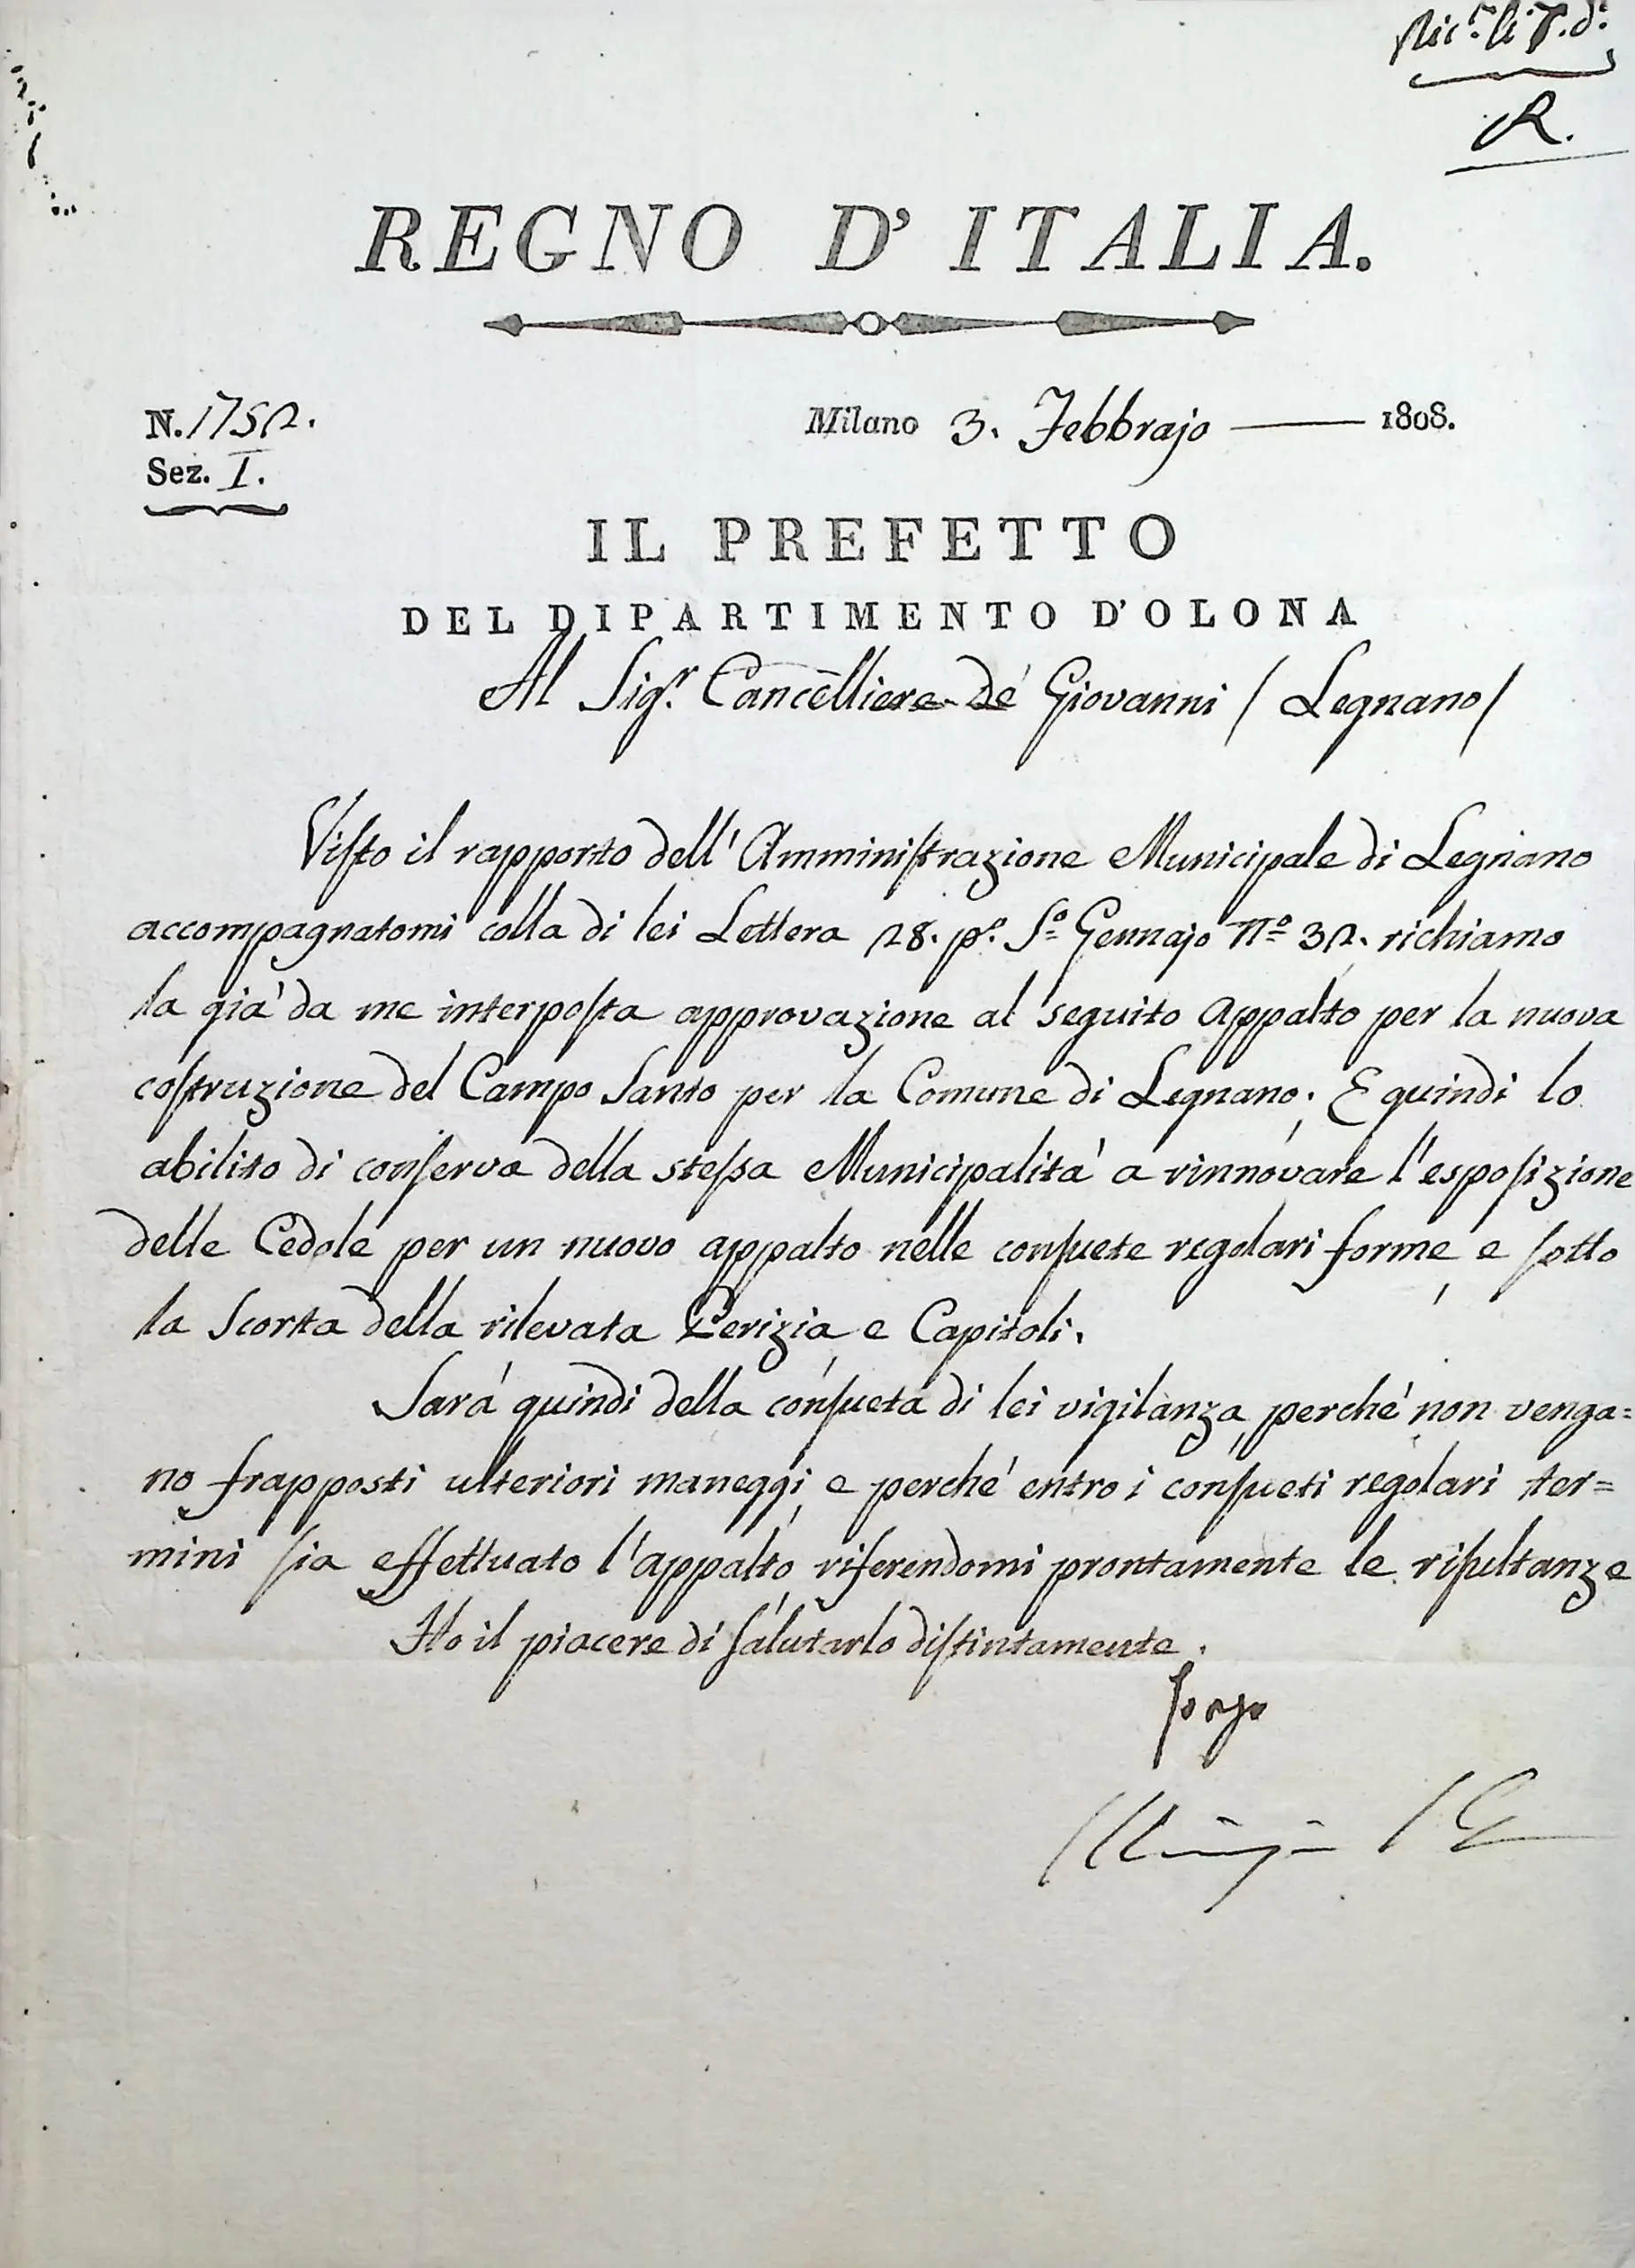 Ric.ta li 7. d.o
R.
REGNO D'ITALIA.
N. 1752.
Milano 3. Febbrajo 1808.
Sez. I.
IL PREFETTO
DEL DIPARTIMENTO D'OLONA
Al Sig.r Cancelliere de Giovanni / Legnano /
Visto il rapporto dell'Amministrazione Municipale di Legnano
accompagnatomi colla di lei Lettera 28. p.o S.o Gennajo N.o 32. richiamo
la già da me interposta approvazione al seguito Appalto per la nuova
costruzione del Campo Santo per la Comune di Legnano. E quindi lo
abilito di conserva della stessa Municipalità a rinnovare l'esposizione
delle Cedole per un nuovo appalto nelle consuete regolari forme, e sotto
la Scorta della rilevata Perizia, e Capitoli.
Sarà quindi della consueta di lei vigilanza, perchè non venga=
no frapposti ulteriori maneggi, e perchè entro i consueti regolari ter=
mini sia effettuato l'appalto, riferendomi prontamente le risultanze
Ho il piacere di salutarlo distintamente.